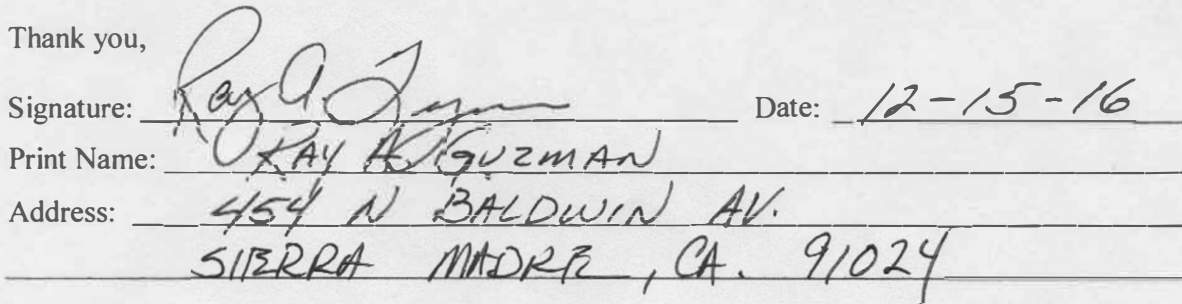 Thank you,
Signature: Ray A Date: 12-15-16
Print Name: RAY A GUZMAN
Address: 454 N BALDWIN AV.
SIERRA MADRE, CA. 91024